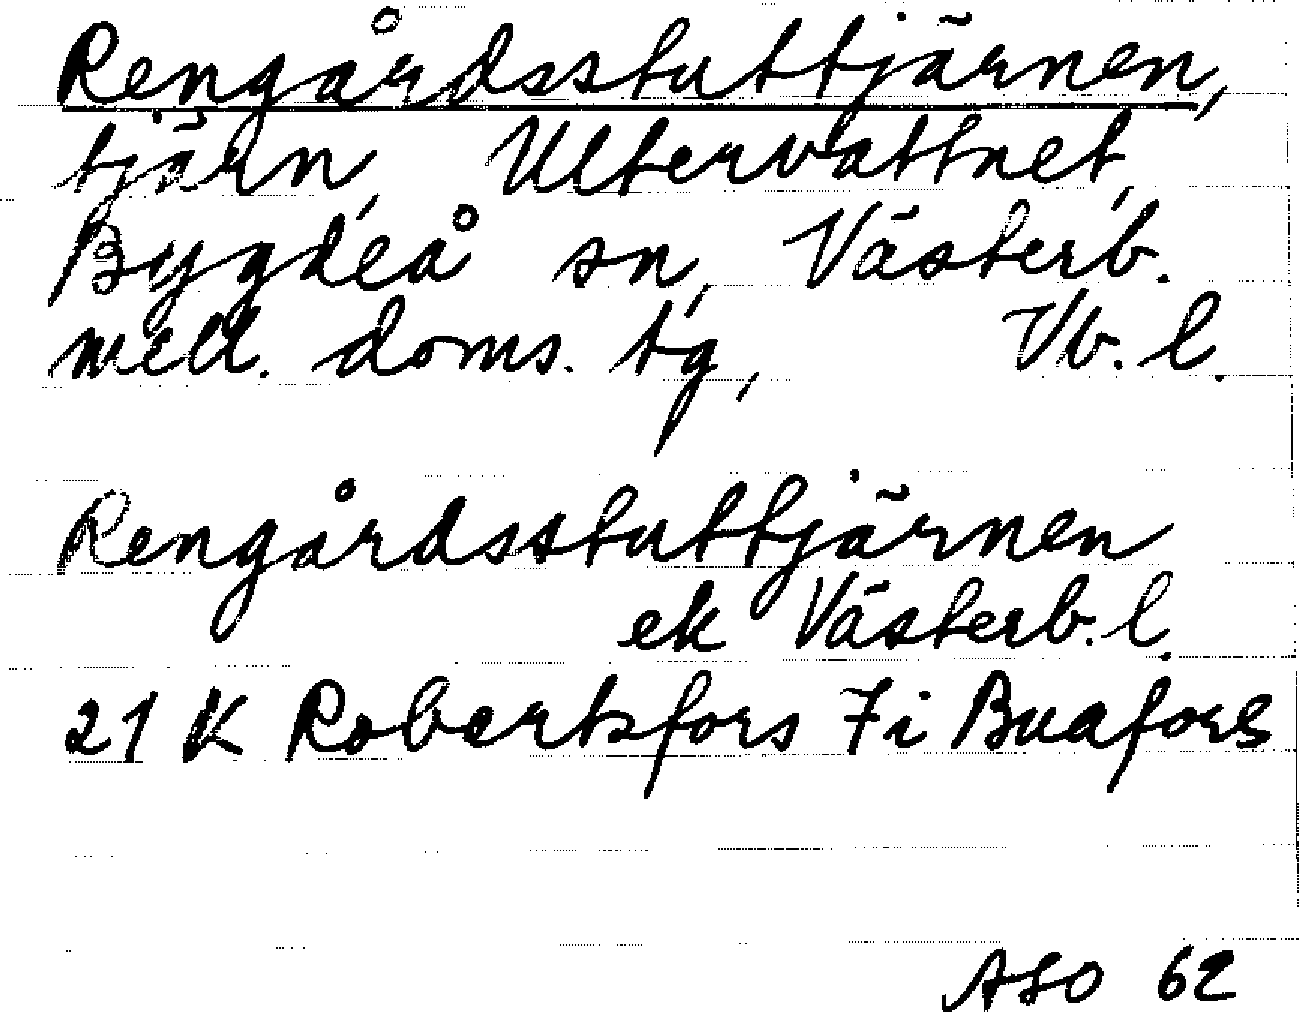 Rengårdsstuttjärnen,
tjärn, Ultervattnet,
Bygdeå sn, Västerb.
mell. doms. tg, Vb. l.
Rengårdsstuttjärnen
ek Västerb. l.
21 K Robertsfors 7 i Buafors
ASO 62